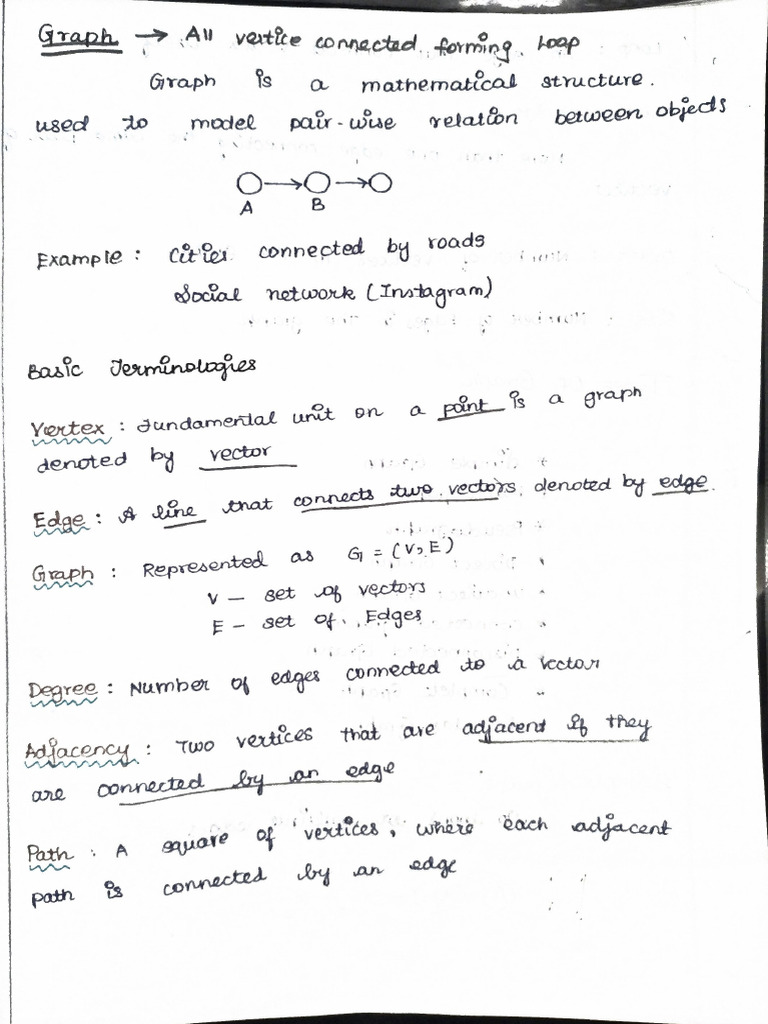 Graph → All vertice connected forming Loop
Graph is a mathematical structure.
used to model pair-wise relation between objects
A B
Example : Cities connected by roads
Social network (Instagram)
Basic Terminologies
Vertex : Fundamental unit on a point is a graph
denoted by vector
Edge : A line that connects two vectors, denoted by edge.
Graph : Represented as G = (V, E)
V – set of vectors
E – set of Edges
Degree : Number of edges connected to a vector
Adjacency : Two vertices that are adjacent if they
are connected by an edge
Path : A square of vertices, where each adjacent
path is connected by an edge